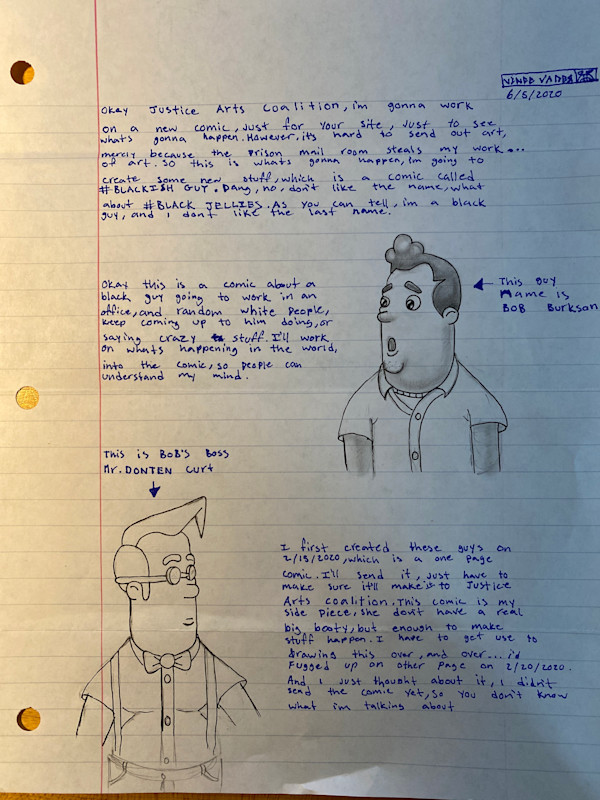 6/5/2020
Okay Justice Arts Coalition, im gonna work
on a new comic, just for your site, just to see
whats gonna happen. However, its hard to send out art,
merely because the prison mail room steals my work...
of art. So this is whats gonna happen, Im going to
create some new stuff, which is a comic called
#BLACKISH GUY. Dang, no, don't like the name, what
about #BLACK JELLIES. As you can tell, im a black
guy, and i dont like the last name.
Okay this is a comic about a
black guy going to work in an
office, and random white people,
keep coming up to him doing, or
saying crazy stuff. I'll work
on whats happening in the world,
into the comic, so people can
understand my mind.
This guy
Name is
BOB Burkson
This is BOB'S BOSS
Mr. DONTEN Curt
I first created these guys on
2/15/2020, which is a one page
comic. I'll send it, just have to
make sure it'll make it to Justice
Arts coalition. This comic is my
side piece, she dont have a real
big booty, but enough to make
stuff happen. I have to get use to
drawing this over, and over... i'd
Fugged up on other page on 2/20/2020.
And, i just thought about it, i didn't
send the comic yet, so you don't know
what im talking about